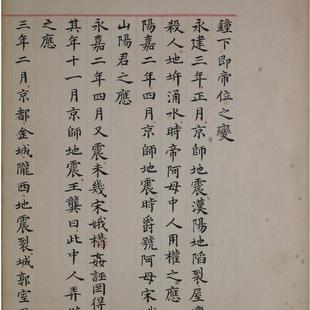 鐘下即帝位之變
永建三年正月京師地震漢陽地陷裂屋壞
殺人地坼涌水時帝阿母中人用權之應
陽嘉二年四月京師地震時爵號阿母宋娥
山陽君之應
永嘉二年四月又震未幾宋娥構姦誣罔得
其年十一月京師地震王龔曰此中人弄
之應
三年二月京都金城隴西地震裂城郭室